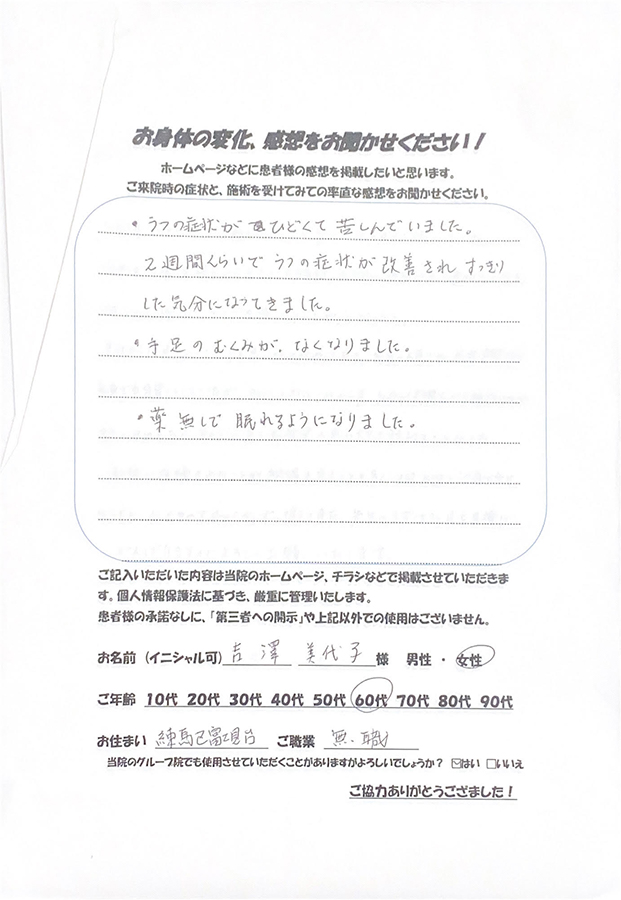 お身体の変化、感想をお聞かせください！
ホームページなどに患者様の感想を掲載したいと思います。
ご来院時の症状と、施術を受けてみての率直な感想をお聞かせください。
・うつの症状がひどくて苦しんでいました。
2週間くらいでうつの症状が改善されすっきり
した気分になってきました。
・手足のむくみが、なくなりました。
・薬無しで眠れるようになりました。
ご記入いただいた内容は当院のホームページ、チラシなどで掲載させていただきま
す。個人情報保護法に基づき、厳重に管理いたします。
患者様の承諾なしに、「第三者への開示」や上記以外での使用はございません。
お名前（イニシャル可） 吉澤 美代子 様 男性・女性
ご年齢 10代 20代 30代 40代 50代 60代 70代 80代 90代
お住まい 練馬区富士見台 ご職業 無職
当院のグループ院でも使用させていただくことがありますがよろしいでしょうか？ ☑はい □いいえ
ご協力ありがとうござました！